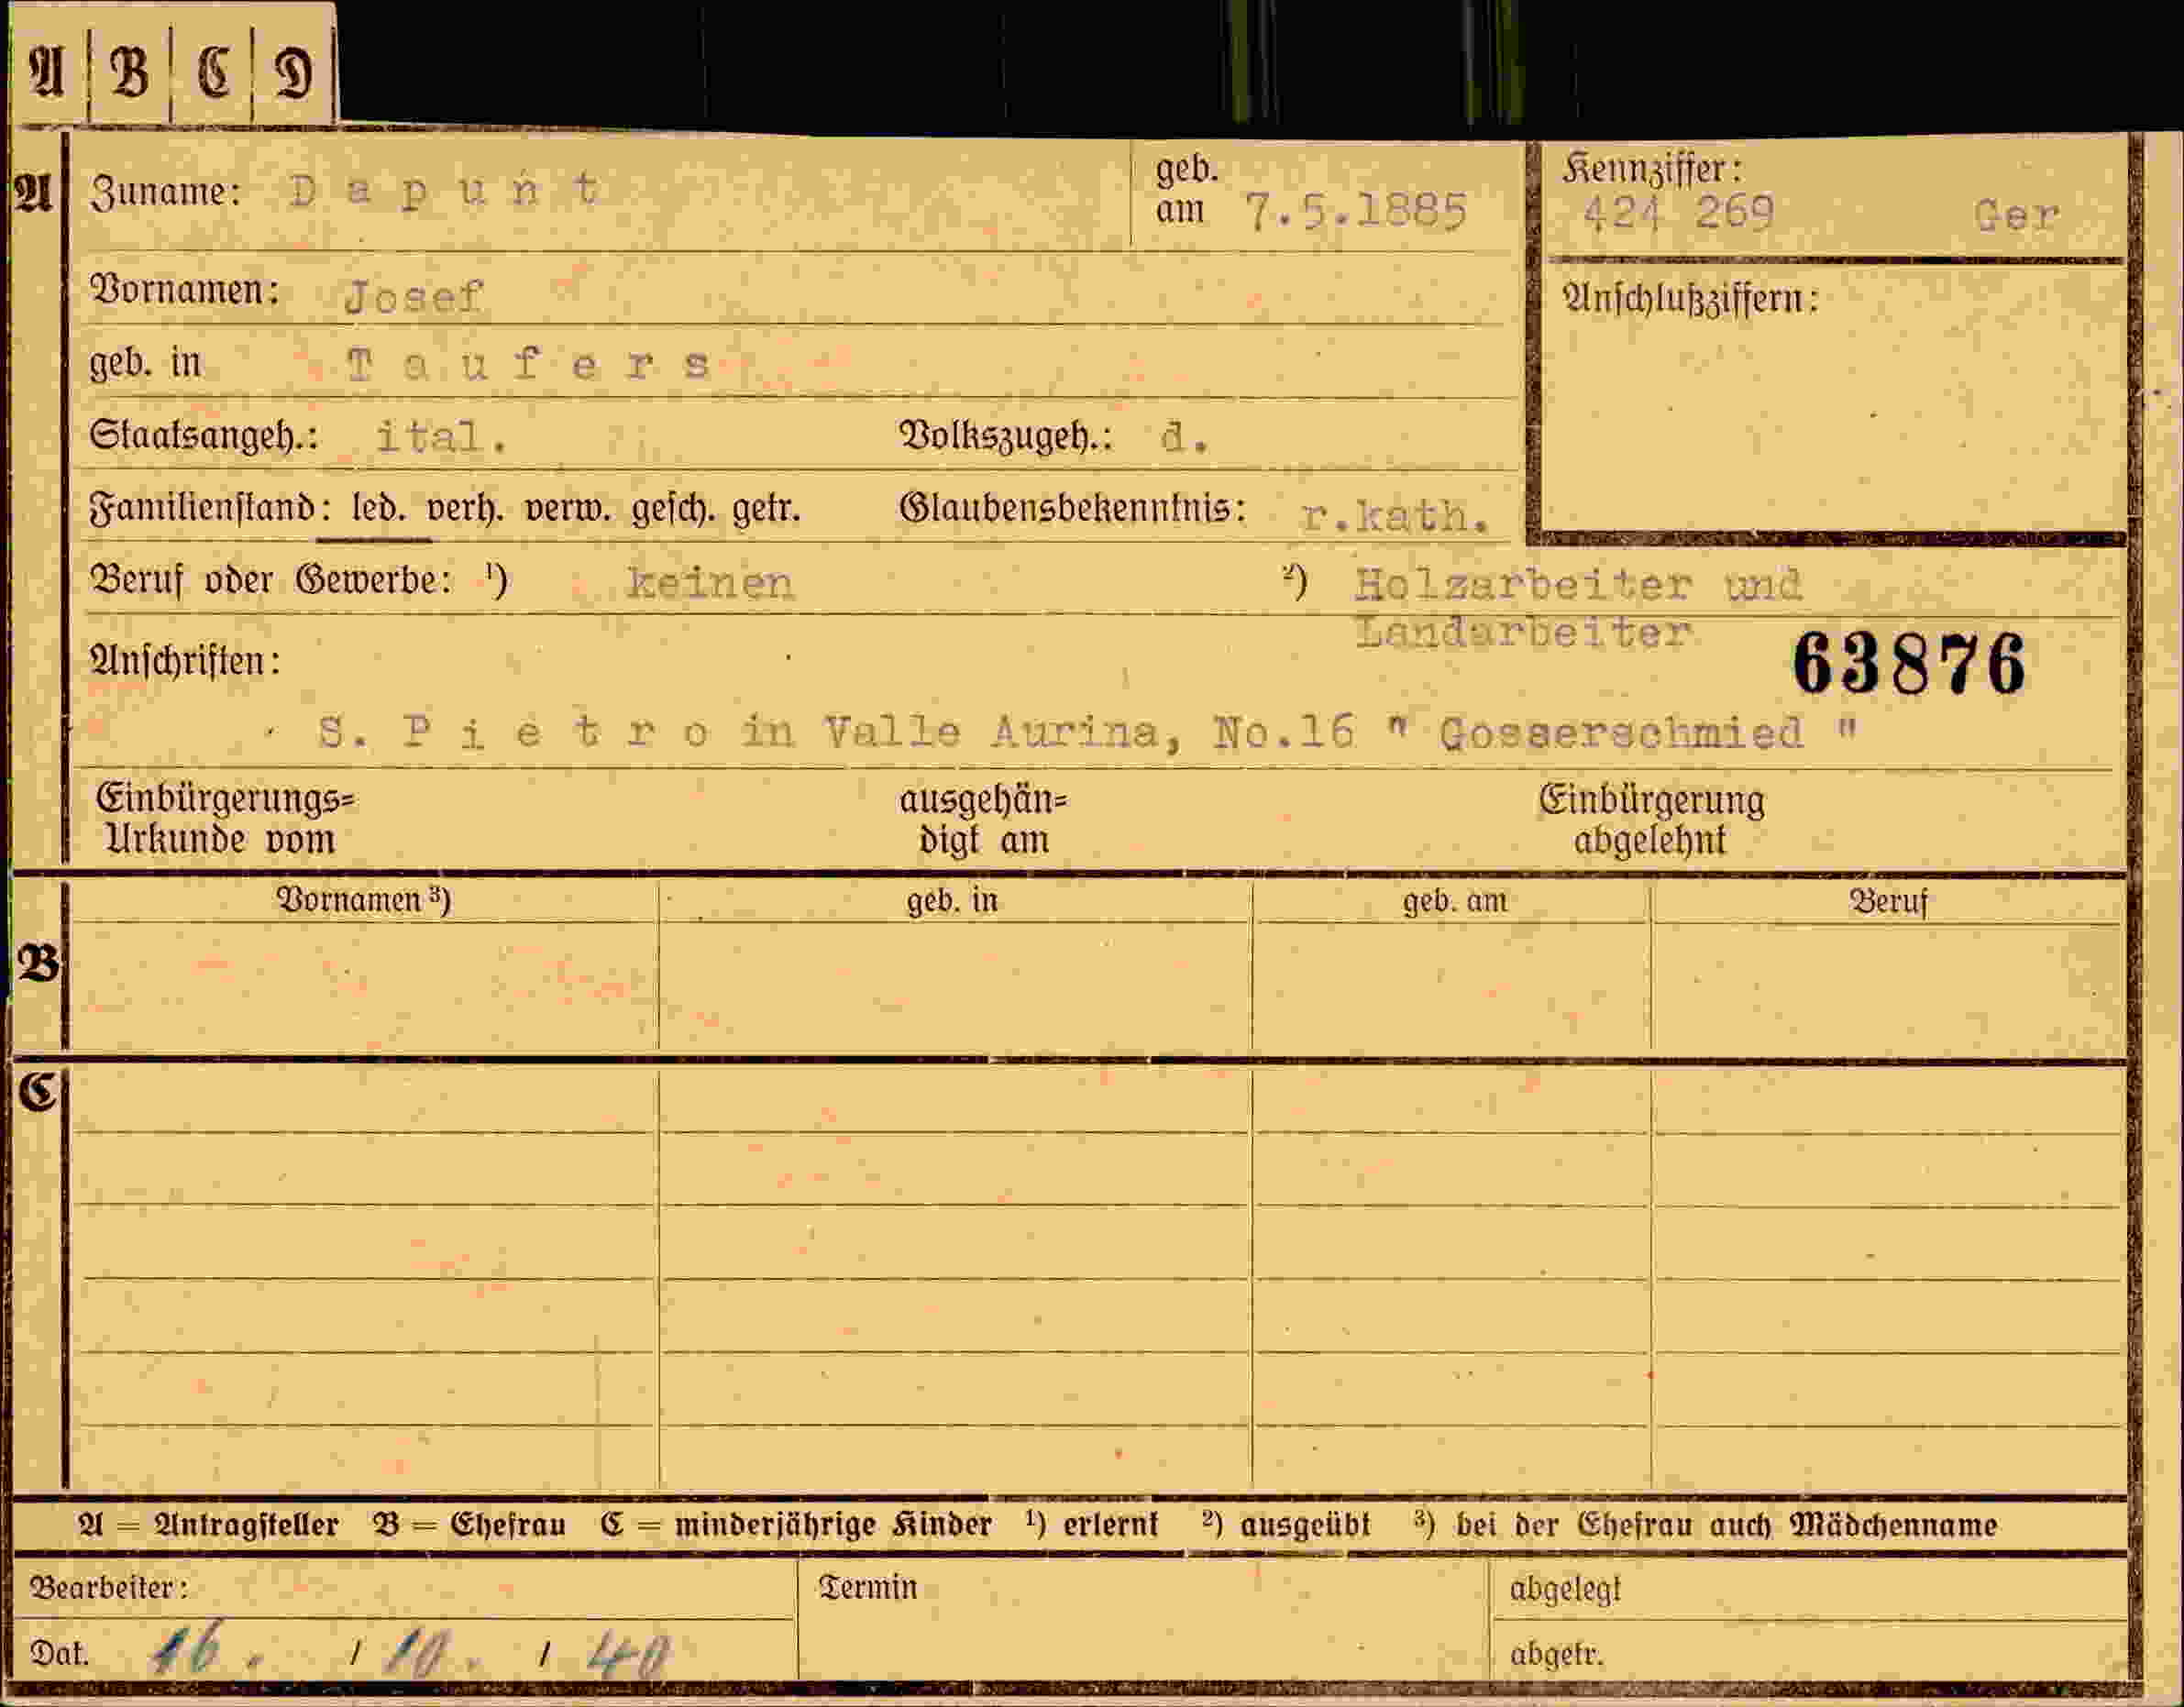 A | B | C | D
A Zuname: Dapunt geb. am 7.5.1885 Kennziffer: 424 269 Ger
Vornamen: Josef Anschlußziffern:
geb. in Taufers
Staatsangeh.: ital. Volkszugeh.: d.
Familienstand: led. verh. verw. gesch. getr. Glaubensbekenntnis: r.kath.
Beruf oder Gewerbe: ¹) keinen ²) Holzarbeiter und
Landarbeiter
Anschriften: 63876
S. Pietro in Valle Aurina, No.16 " Gosserschmied "
Einbürgerungs= ausgehän= Einbürgerung
Urkunde vom digt am abgelehnt
Vornamen ³) geb. in geb. am Beruf
B
C
A = Antragsteller B = Ehefrau C = minderjährige Kinder ¹) erlernt ²) ausgeübt ³) bei der Ehefrau auch Mädchenname
Bearbeiter: Termin abgelegt
Dat. 16. / 10. / 40 abgetr.